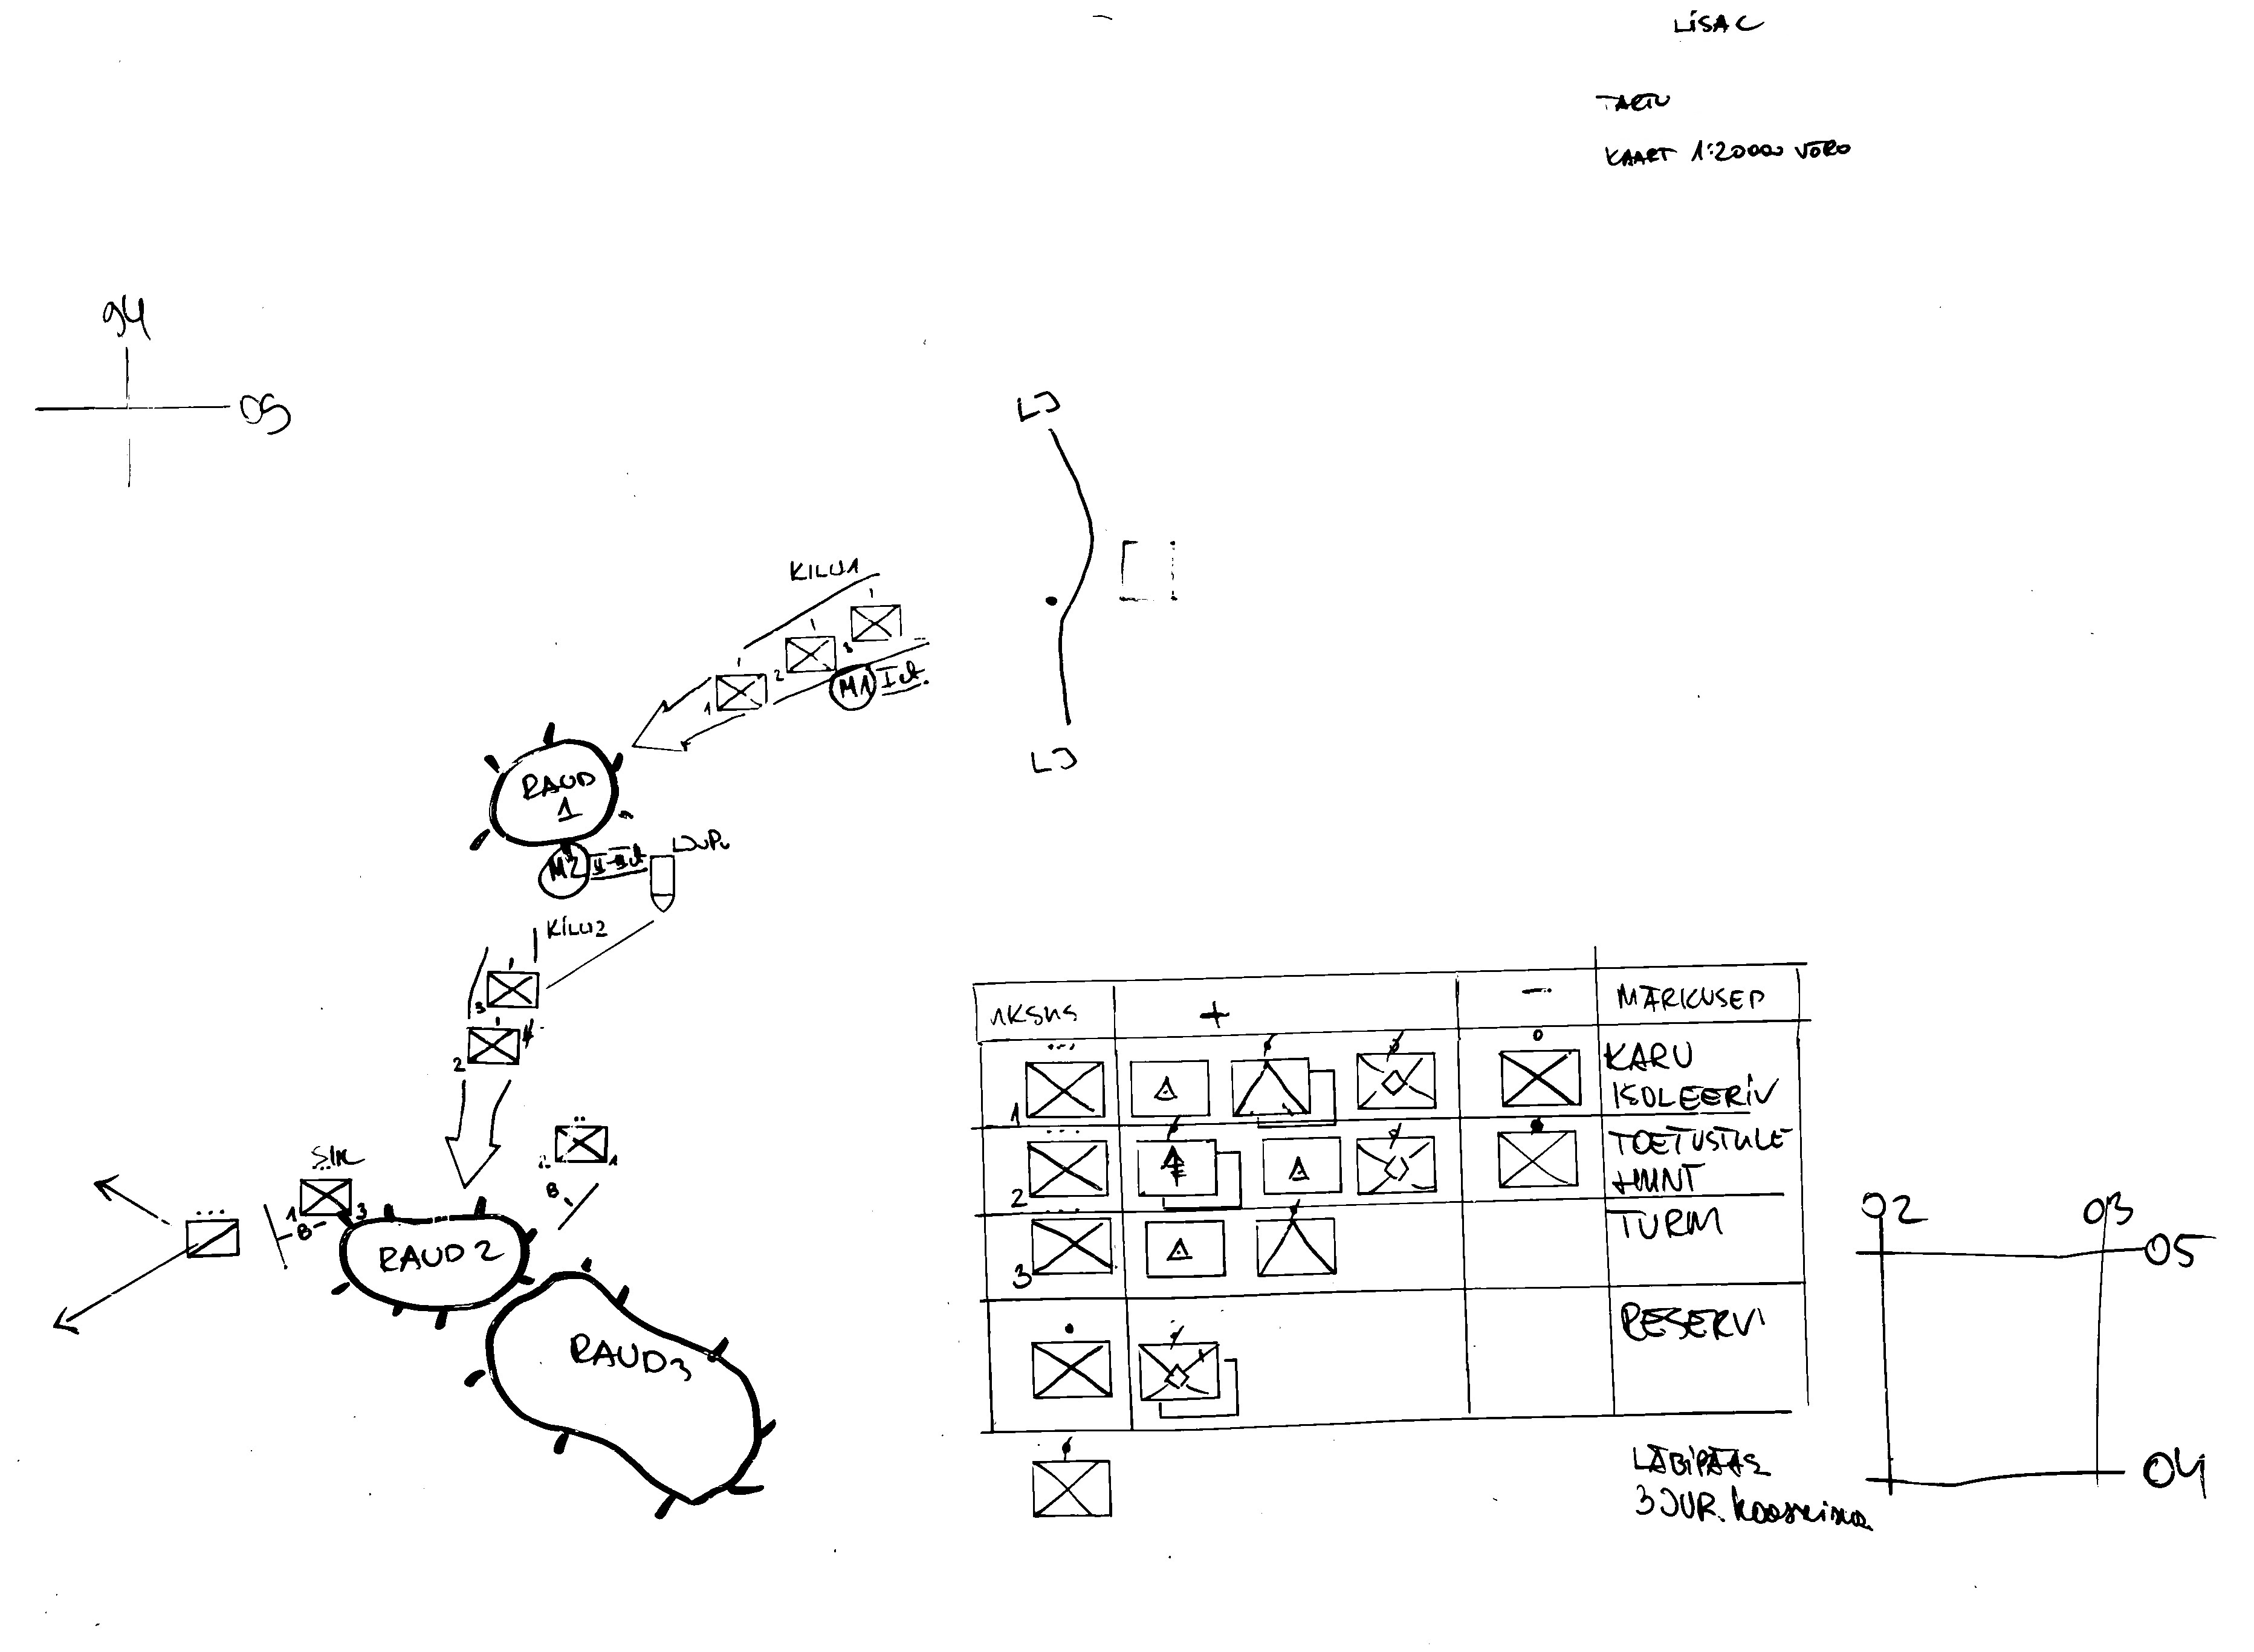 LISA C
TARTU
KAART 1:20000 VÕRO
94
05
LJ
KILU1
1
2
3
M1
LJ
RAUD
1
M2
KILU2
3
2
1
3
8
8
RAUD 2
RAUD3
ÜKSUS + - MÄRKUSED
1 KARU
ISOLEERIV
2 TOETUSTULE
HUNT
3 TURM
RESERV
LÄBIPÄÄS
3 JUR. koosseisus
02 03
05
04